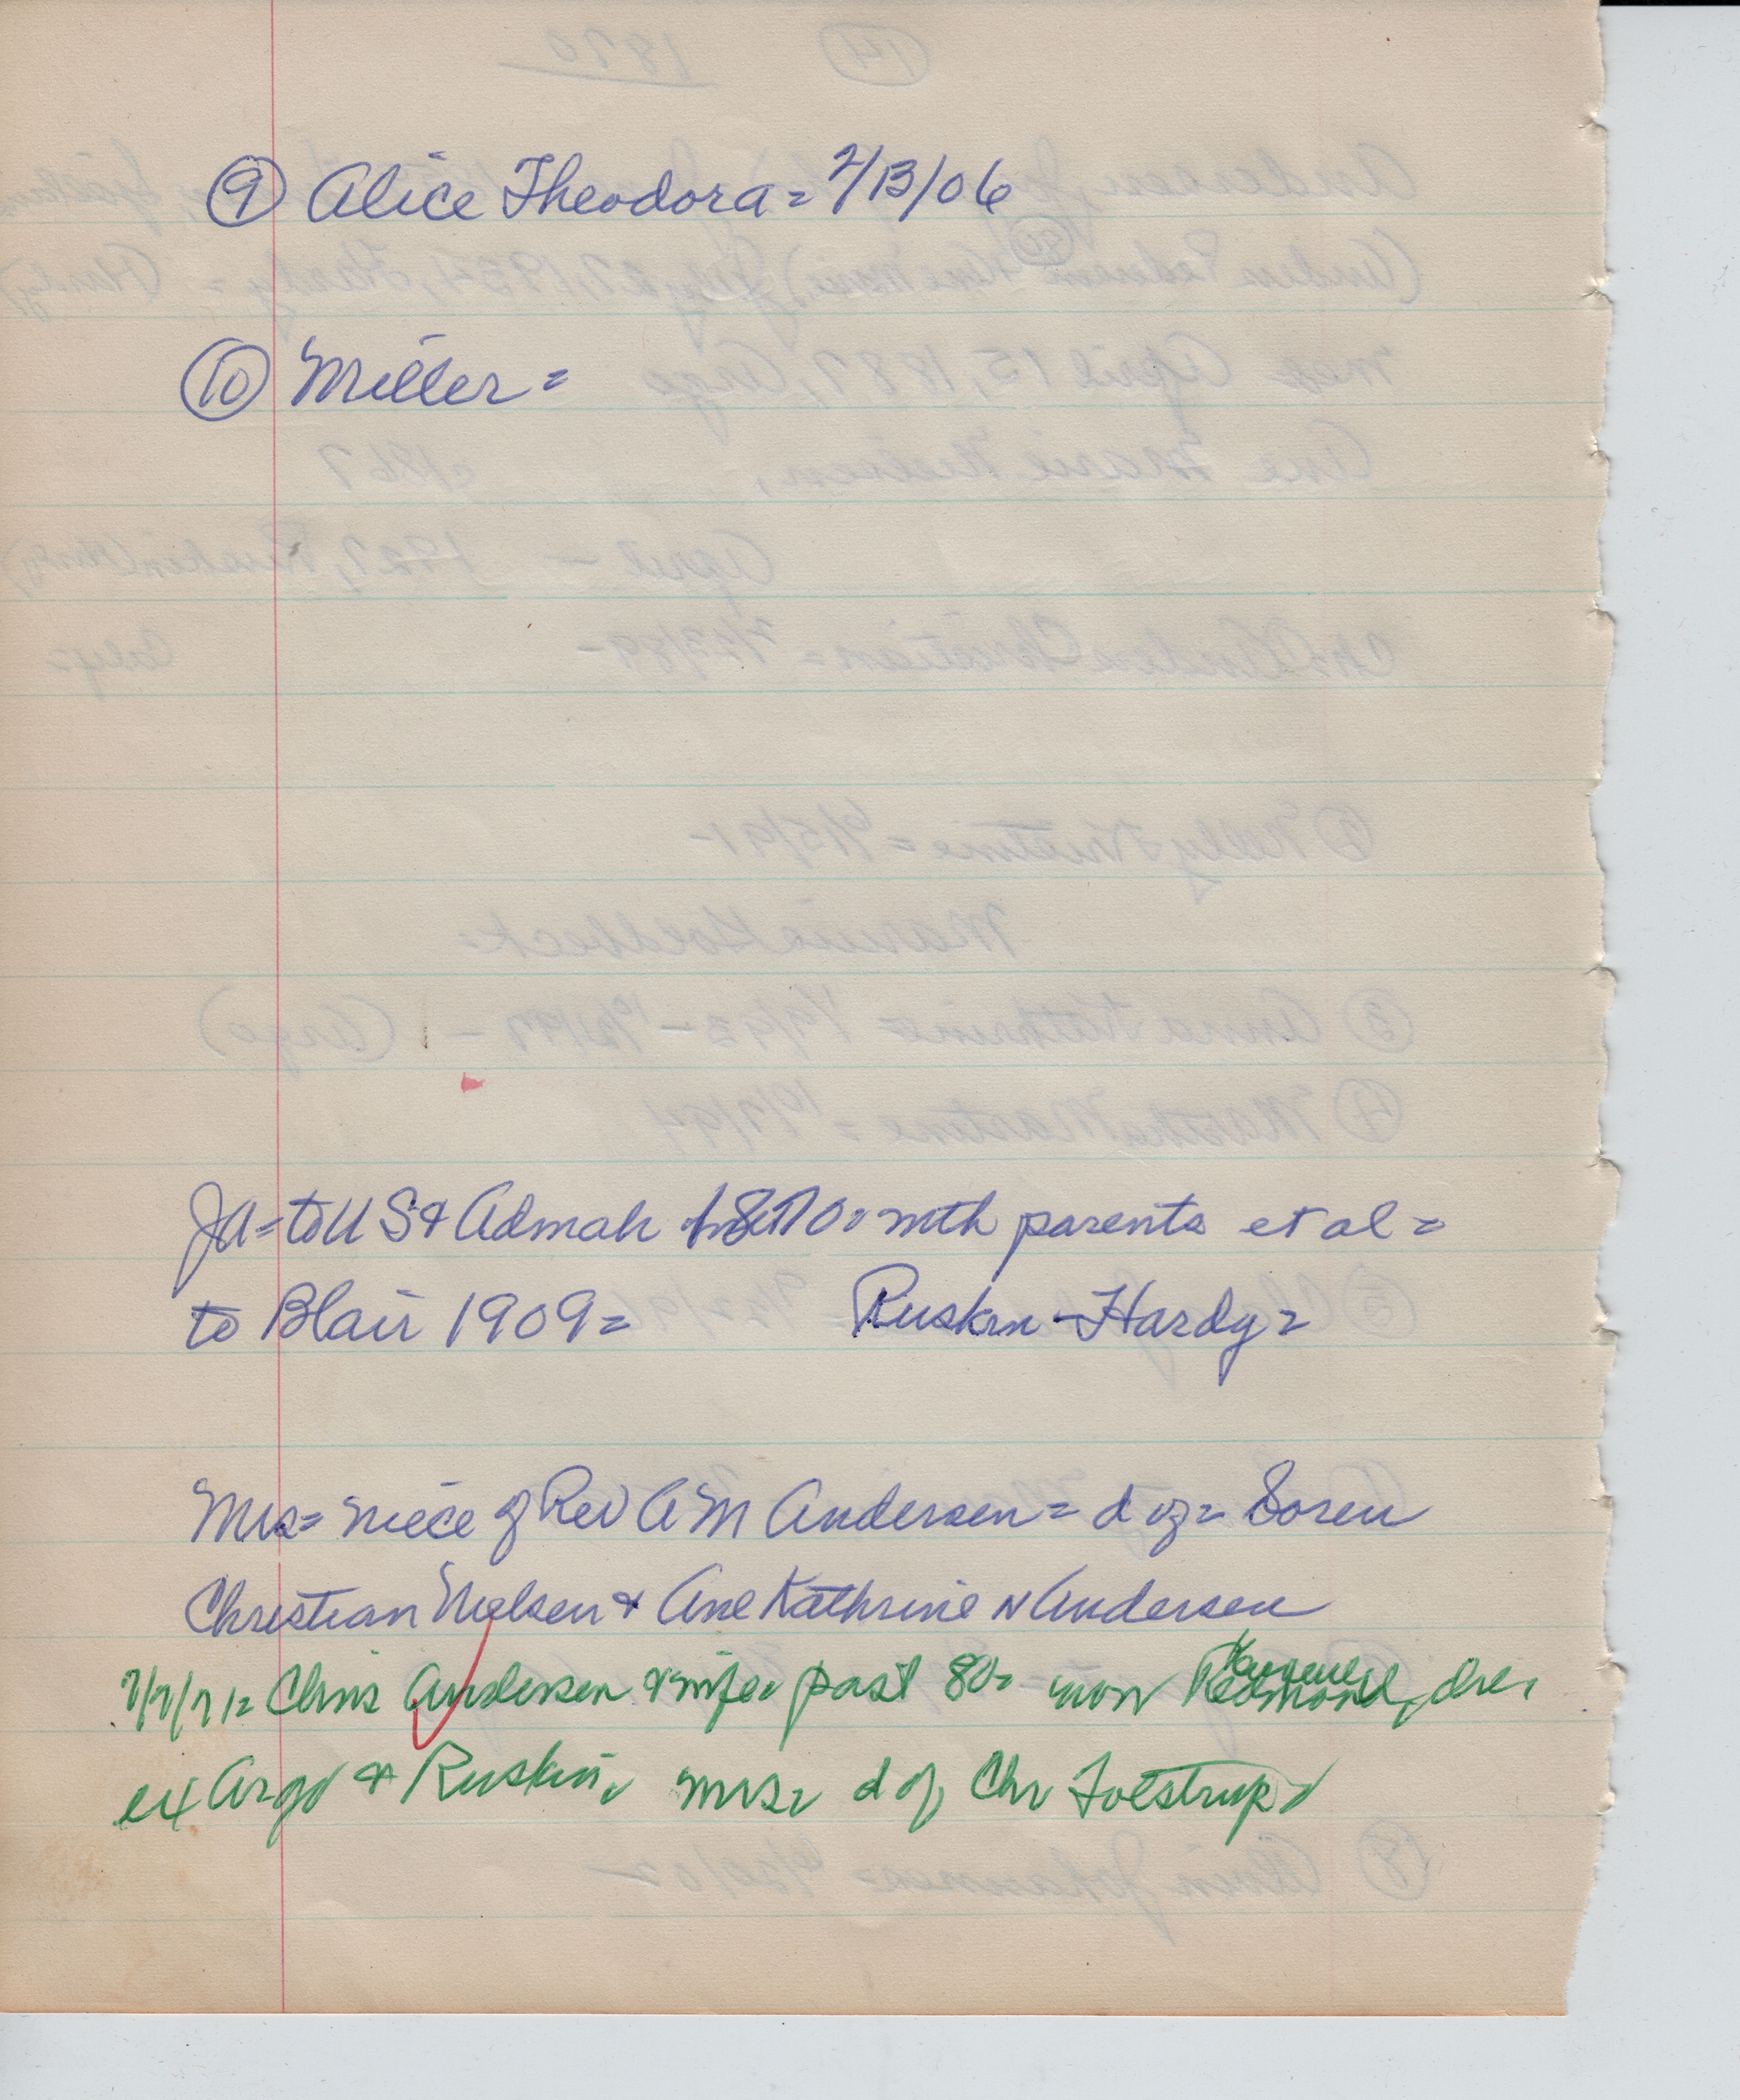 ⑨ Alice Theodora = 2/13/06
⑩ Miller =
JA = to US & Admah 1870 = with parents et al =
to Blair 1909 = Ruskin - Hardy =
Mrs = niece of Rev A M Andersen = d of = Soren
Christian Nielsen & Ane Kathrine N Andersen
7/7/71 = Chris Andersen & wife = past 80 = now Eugene Redmond, Ore,
ex Argo & Ruskin, Mrs = d of Chr Tolstrup